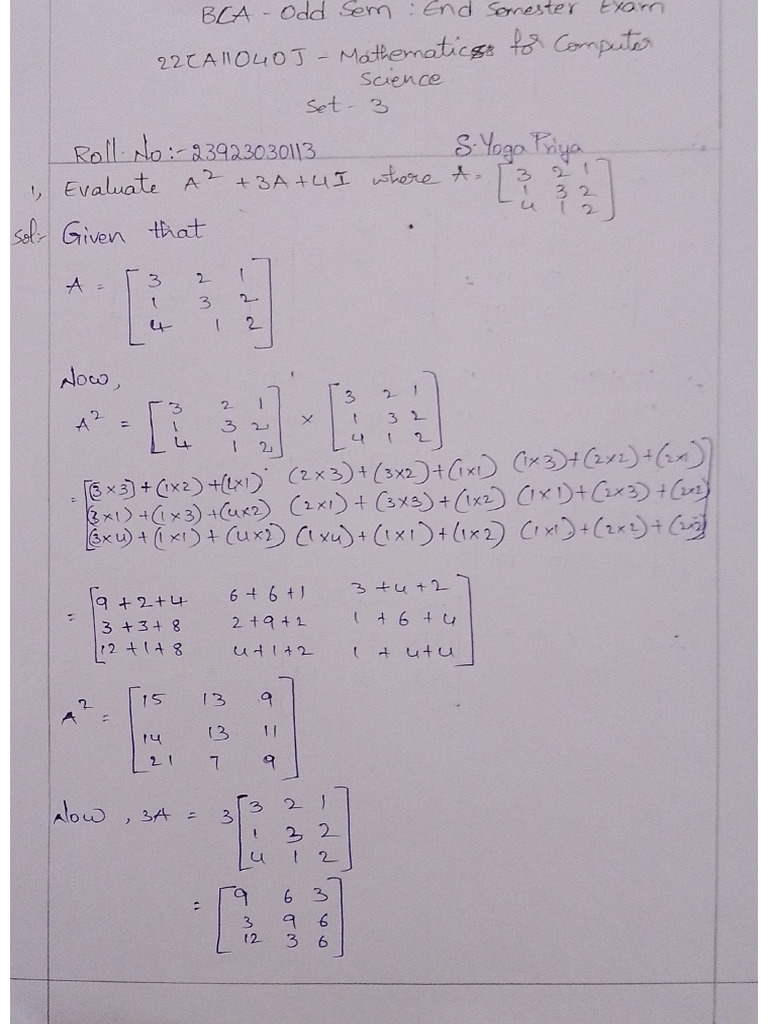 BCA - Odd Sem : End Semester Exam
22CA11040J - Mathematics for Computer
Science
Set - 3
Roll No :- 23923030113 S. Yoga Priya
1, Evaluate A² + 3A + 4I where A = [3 2 1
1 3 2
4 1 2]
Sol:- Given that
A = [3 2 1
1 3 2
4 1 2]
Now,
A² = [3 2 1 × [3 2 1
1 3 2 1 3 2
4 1 2] 4 1 2]
= [(3×3) + (1×2) + (4×1) (2×3) + (3×2) + (1×1) (1×3) + (2×2) + (2×1)
(3×1) + (1×3) + (4×2) (2×1) + (3×3) + (1×2) (1×1) + (2×3) + (2×2)
(3×4) + (1×1) + (4×2) (1×4) + (1×1) + (1×2) (1×1) + (2×2) + (2×2)]
= [9 + 2 + 4 6 + 6 + 1 3 + 4 + 2
3 + 3 + 8 2 + 9 + 2 1 + 6 + 4
12 + 1 + 8 4 + 1 + 2 1 + 4 + 4]
A² = [15 13 9
14 13 11
21 7 9]
Now , 3A = 3[3 2 1
1 3 2
4 1 2]
= [9 6 3
3 9 6
12 3 6]